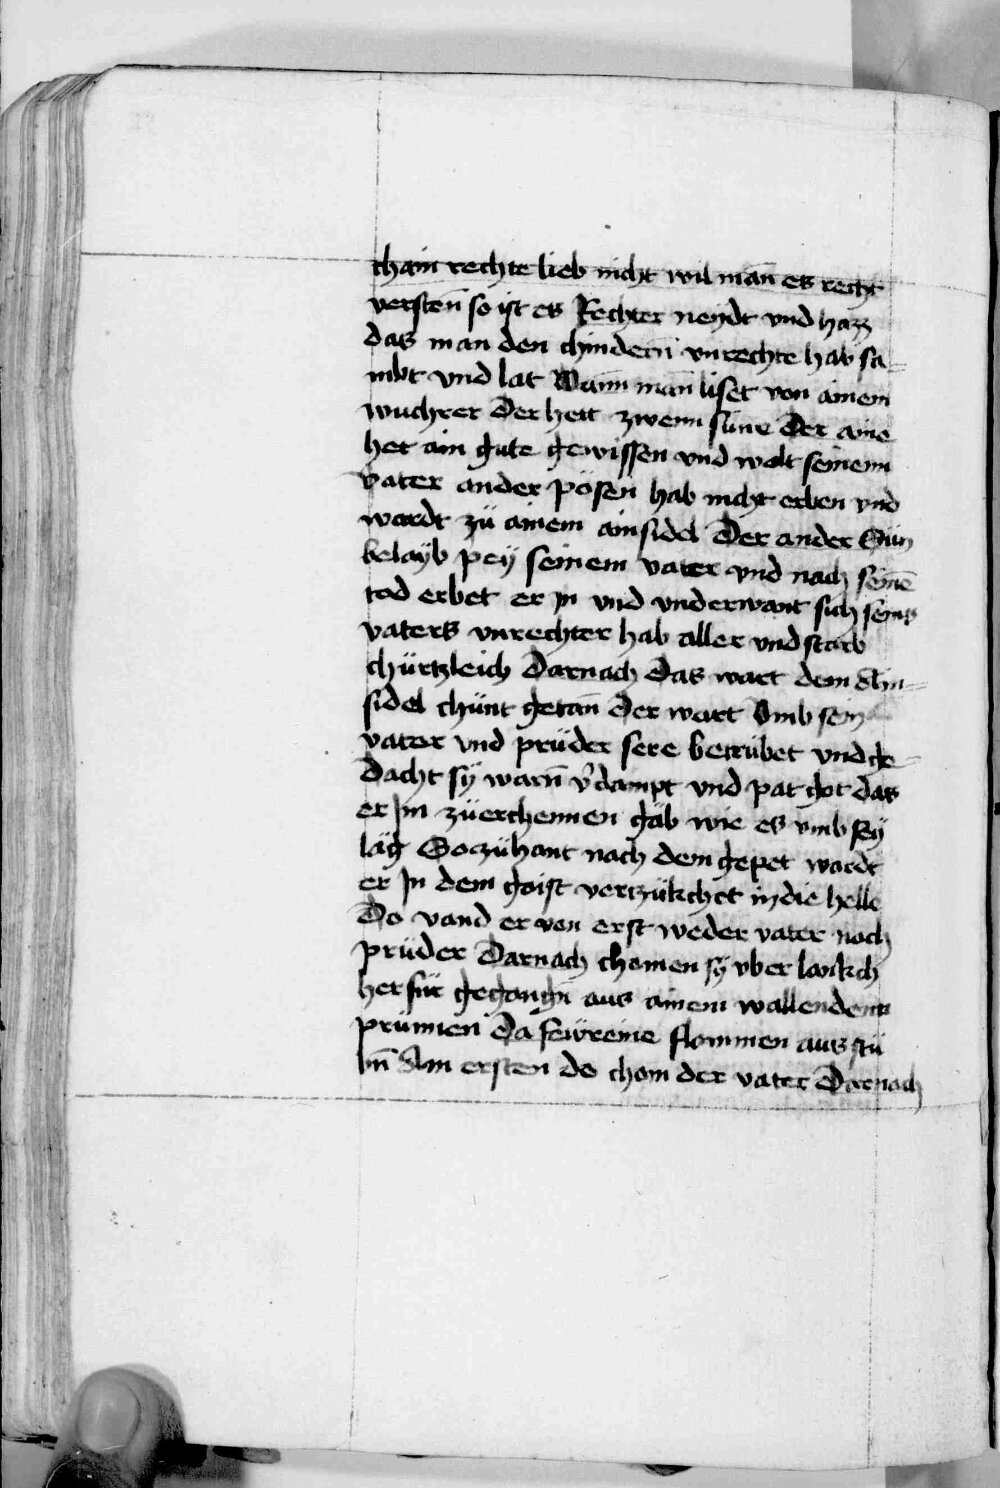 chain rechte lieb nicht wil man es recht
versten̄ so ist es Rechter neydt vnd hazz
das man den chindern̄ vnrechte hab sa=
mbt vnd lat Wann man liset von ainem
wuchrer Der hett zwenn sün̄e Der aine
het ain gute gewissen vnd wolt seinem
vater ander pösen hab nicht erben vnd
wardt zü ainem ainsidel Der ander Sün
belayb pey seinem vater vnd nach seinē
tod erbet er in vnd vnderwant sich seins
vaters vnrechter hab aller vnd starb
chürtzleich Darnach Das wart dem Ain=
sidel chünt getan̄ Der wart Vmb sein
vater vnd prüder sere betrübet vnd ge=
dacht sy warn̄ v̉dampt vnd pat got das
er im zü erchennen gäb wie es vmb sey
läg So zühant nach dem gepet wardt
er In dem gaist vertzükchet in die helle
Do vand er von erst weder vater noch
prüder Darnach chomen sy vber lankch
herfür gegangn̄ aus ainem wallenden
prünnen Da fewreine flammen aus stü
bn̄ Am ersten do chom der vater Darnach